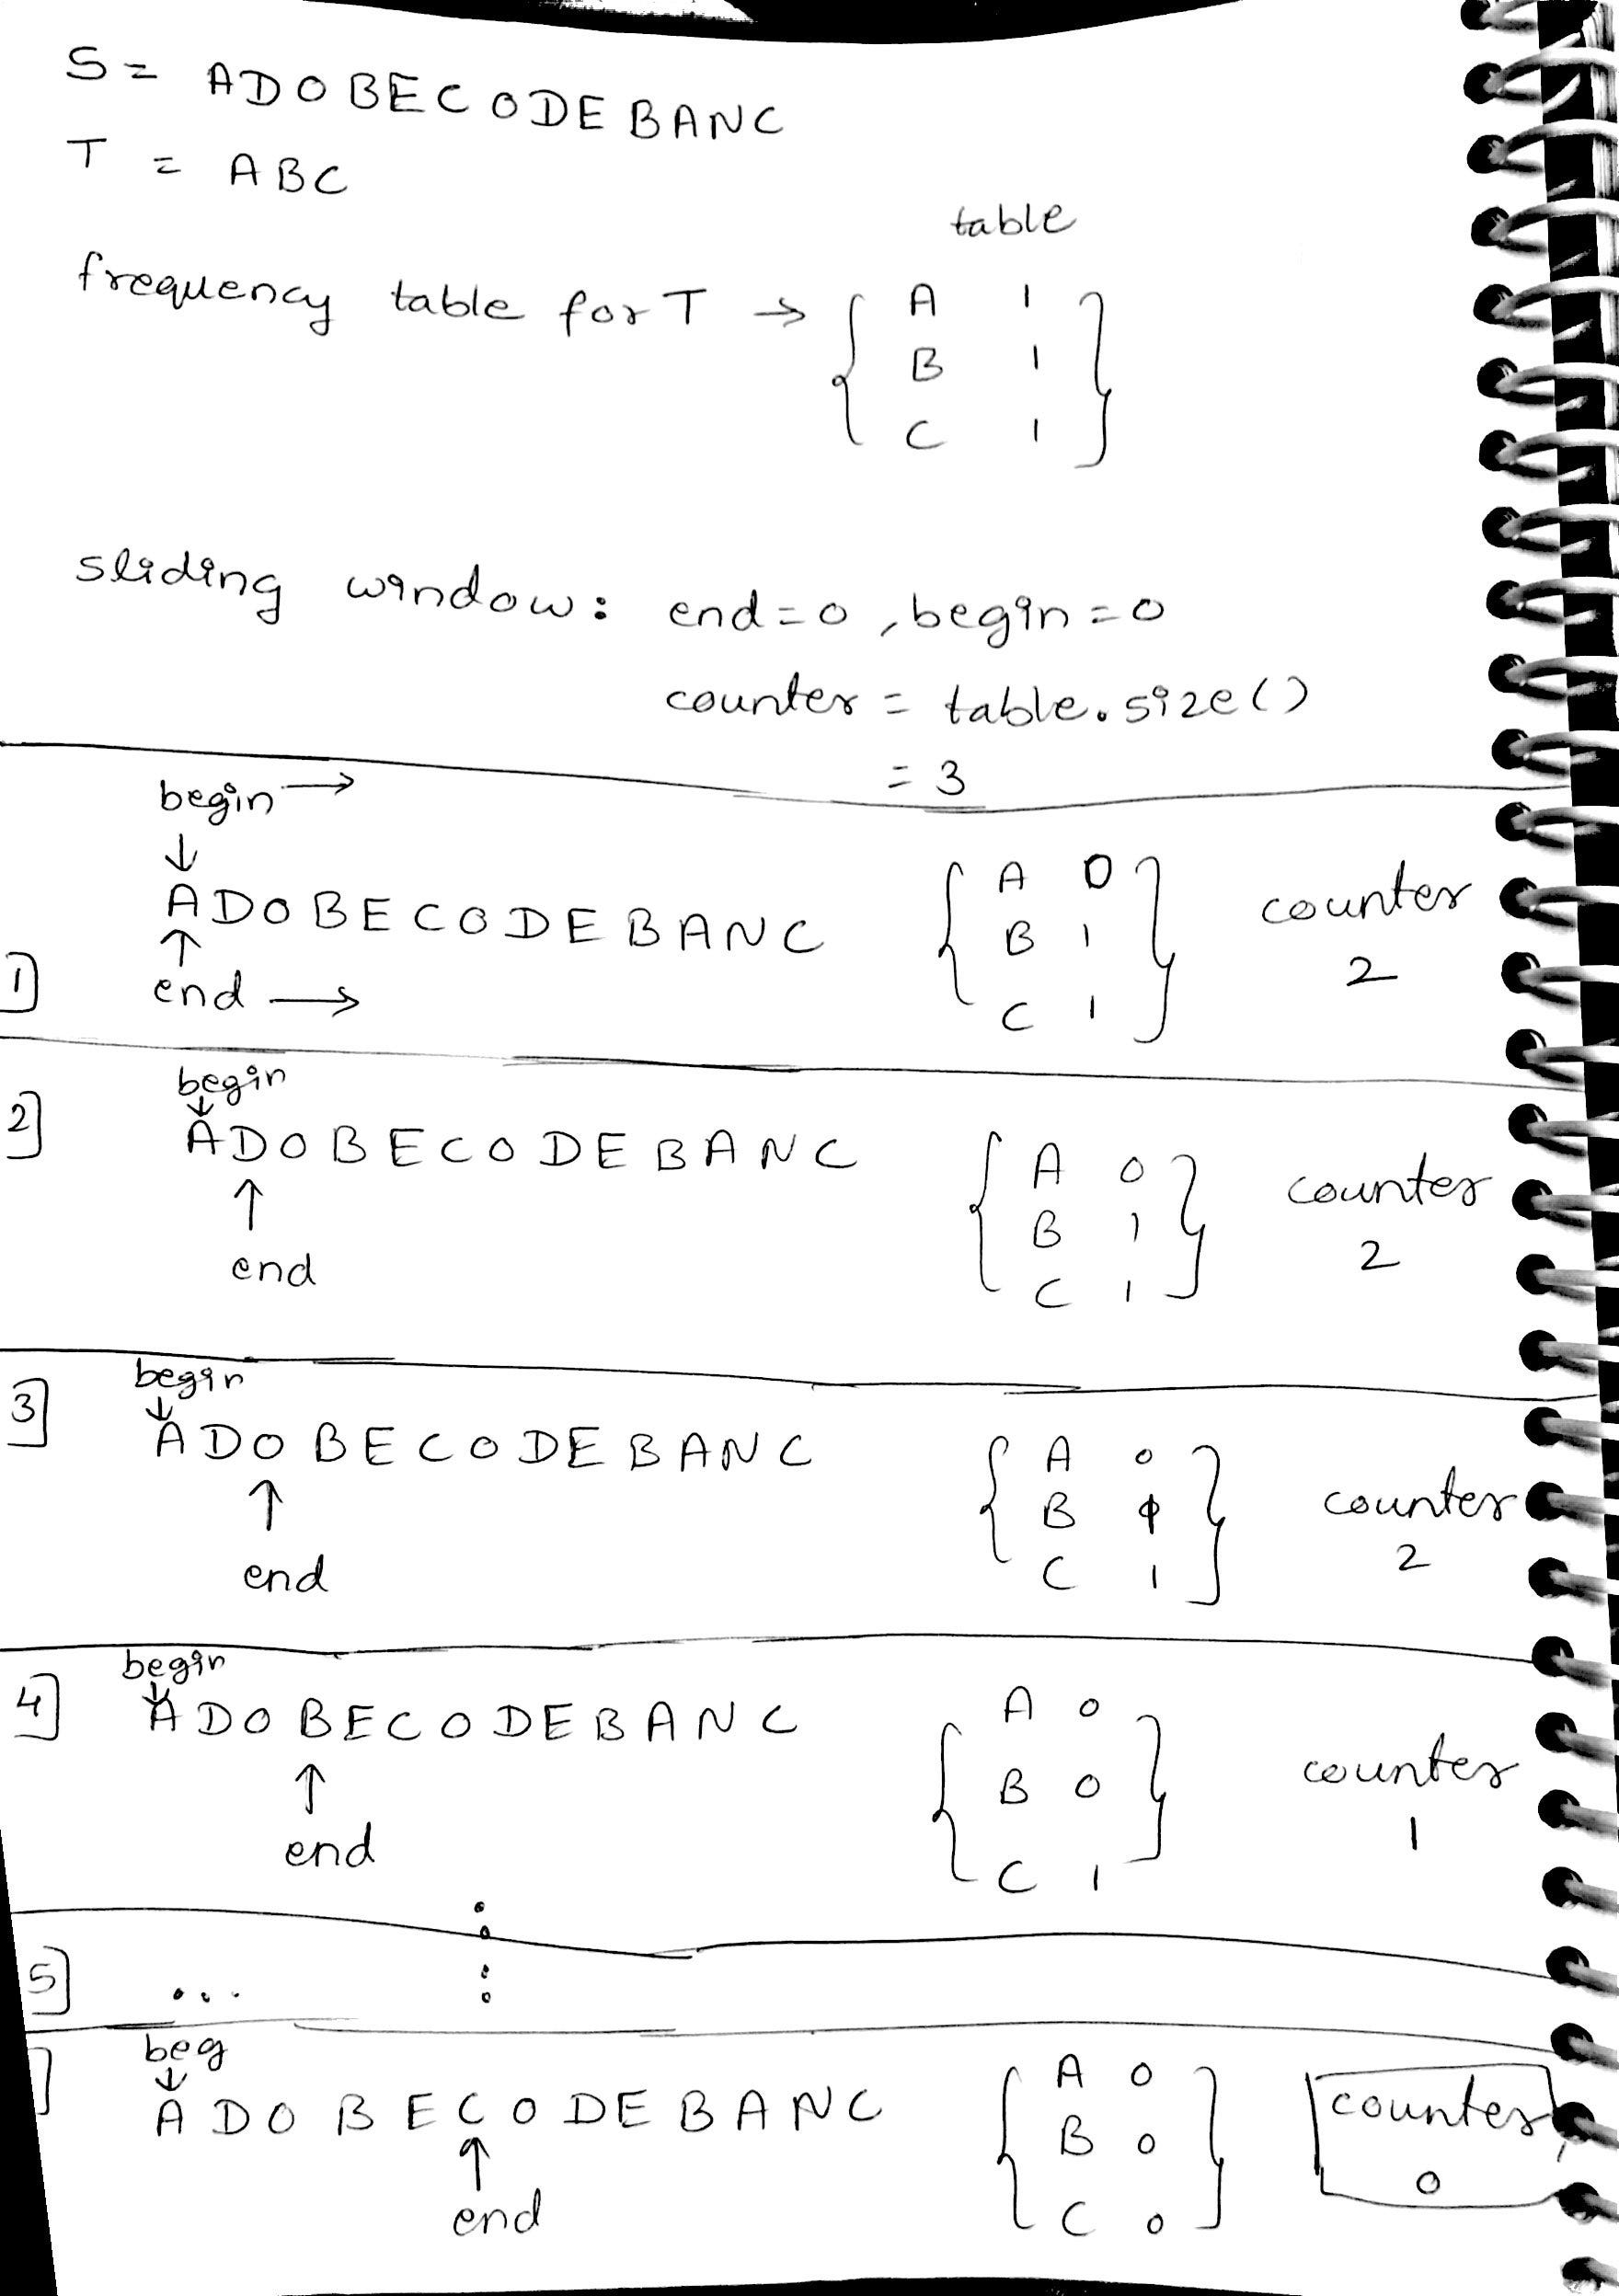 S = ADOBECODEBANC
T = ABC
table
frequency table for T → { A 1
B 1
C 1 }
sliding window: end=0, begin=0
counter = table.size()
= 3
begin →
↓
ADOBECODEBANC { A 0 counter
↑ B 1 2
1] end → C 1 }
begin
2] ↓
ADOBECODEBANC { A 0 counter
↑ B 1 2
end C 1 }
begin
3] ↓
ADOBECODEBANC { A 0
↑ B φ counter
end C 1 } 2
begin
4] ↓
ADOBECODEBANC A 0
↑ { B 0 } counter
end C 1 1
:
5] ... :
beg
] ↓
ADOBECODEBANC { A 0 counter
↑ B 0
end C 0 } 0